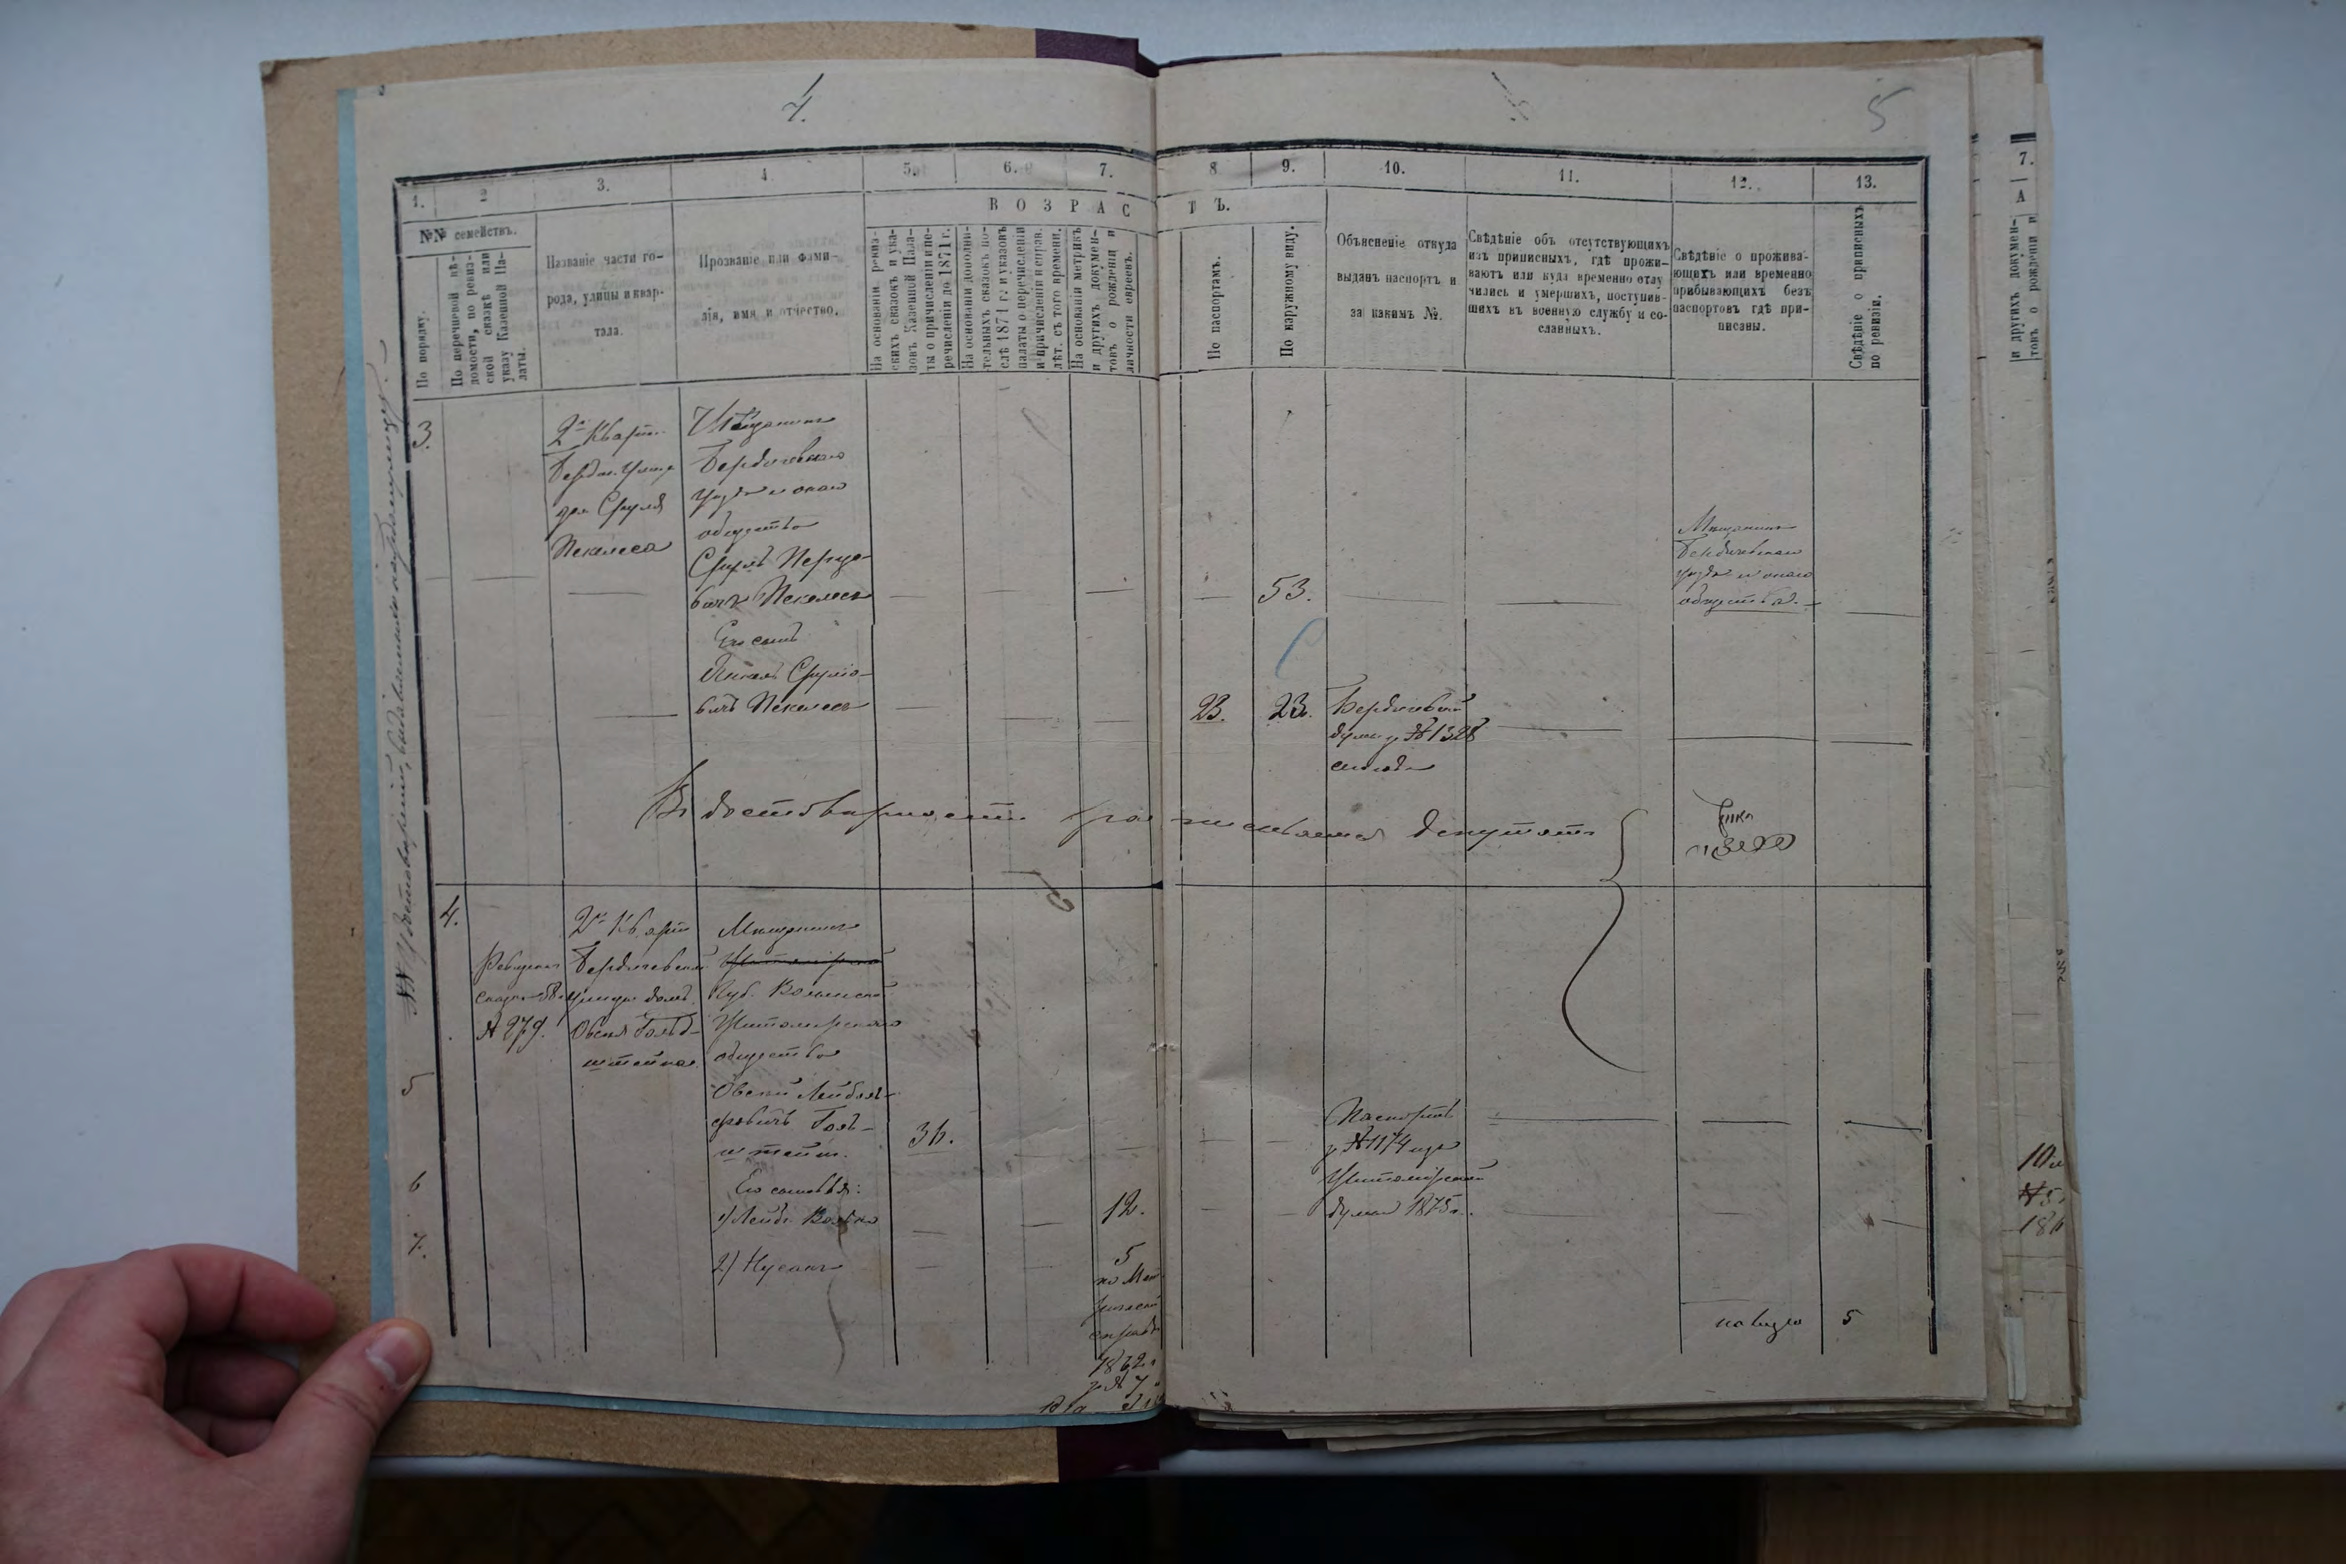 4.
5
1.
2
3.
4.
5.
6.
7.
8
9.
10.
11.
12.
13.
ВОЗРАСТЪ.
№№ семействъ.
По порядку.
По перечневой вѣ-
домости, по ревиз-
ской сказкѣ или
указу Казенной Па-
латы.
Названіе части го-
рода, улицы и квар-
тала.
Прозваніе или фами-
лія, имя и отчество.
На основаніи ревиз-
скихъ сказокъ и ука-
зовъ Казенной Пала-
ты о причисленіи и пе-
речисленіи до 1871 г.
На основаніи дополни-
тельныхъ сказокъ по-
слѣ 1871 г. и указовъ
палаты о перечисленіи
и причисленіи и справ.
лѣт. съ того времени.
На основаніи метрикъ
и другихъ докумен-
товъ о рожденіи и
личности евреевъ.
По паспортамъ.
По наружному виду.
Объясненіе откуда
выданъ паспортъ и
за какимъ №.
Свѣдѣніе объ отсутствующихъ
изъ приписныхъ, гдѣ прожи-
ваютъ или куда временно отлу
чились и умершихъ, поступив-
шихъ въ военную службу и со-
сланныхъ.
Свѣдѣніе о прожива-
ющихъ или временно
прибывающихъ безъ
паспортовъ гдѣ при-
писаны.
Свѣдѣніе о приписныхъ
по ревизіи.
3.
2й Кварт.
дом Сруля
Пекелеса
Мѣщанинъ
Бердичевскаго
уѣзда и онаго
общества
Сруль
Пекелесъ
53.
Мѣщанинъ
Бердичевскаго
уѣзда и онаго
общества.
Его сынъ
Срулю-
вичъ Пекелесъ
23.
23.
Бердичевской
думы №1328
Въ достовѣрности росписываемся депутаты
4.
Ревизская
сказка 58 г.
№ 279.
2й Кварт
Бердичевской
улицы домъ
Овсея Гольд-
штейна
Мѣщанинъ
Губ. Волынской
Житомирскаго
общества
Овсей Лейбъ
Голь-
штейн.
36.
Паспортъ
№1174 изъ
Житомирской
думы 1875 г.
5
6
7.
Его сыновья:
1) Лейб Волько
12.
2) Нусанъ
5
по Мет
рической
справк
1862 г
№ 7
на лицо
5
7.
А
и другихъ докумен-
товъ о рожденіи и